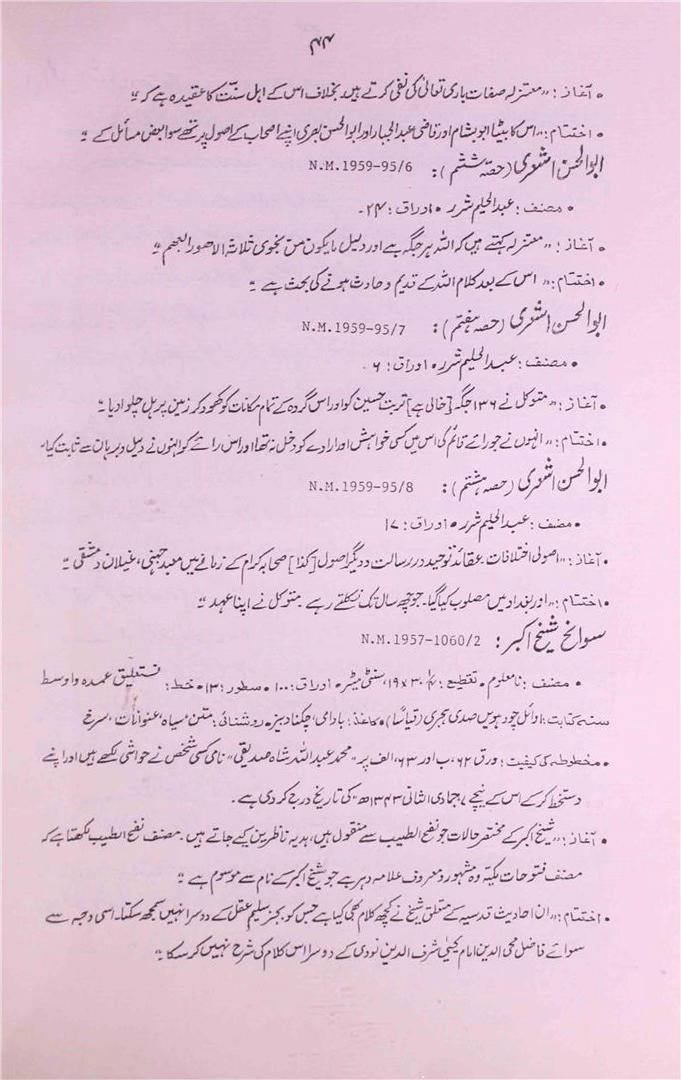 ۴۴
• آغاز : "معتزلہ صفات باری تعالیٰ کی نفی کرتے ہیں بخلاف اس کے اہل سنت کا عقیدہ ہے کہ"
• اختتام : "اس کا بیٹا ابو ہشام اور قاضی عبد الجبار اور ابو الحسن بصری اپنے اصحاب کے اصول پر تھے سوا بعض مسائل کے"
ابوالحسن اشعری (حصہ ششم) : N.M.1959-95/6
• مصنف : عبدالحلیم شرر • اوراق : ۲۴ -
• آغاز : "معتزلہ کہتے ہیں کہ اللہ ہر جگہ ہے اور دلیل مایکون من نجوی ثلاثة الاھور ابعھم"
• اختتام : "اس کے بعد کلام اللہ کے قدیم و حادث ہونے کی بحث ہے"
ابوالحسن اشعری (حصہ ہفتم) : N.M.1959-95/7
• مصنف : عبدالحلیم شرر • اوراق : ۶
• آغاز : "متوکل نے ۱۳۶ جگہ [خالی ہے] تربت حسین کو اور اس گروہ کے تمام مکانات کو کھود کر زمین پر ہل چلوا دیا"
• اختتام : "انہوں نے جو رائے قائم کی اس میں کسی خواہش اور ارادے کو دخل نہ تھا اور اس رائے کو انہوں نے دلیل و برہان سے ثابت کیا"
ابوالحسن اشعری (حصہ ہشتم) : N.M.1959-95/8
• مصنف : عبدالحلیم شرر • اوراق : ۱۷
• آغاز : "اصولی اختلافات عقائد توحید در رسالت و دیگر اصول [کذا] صحابہ کرام کے زمانے میں معبد جہنی، غیلان دمشقی"
• اختتام : "اور بغداد میں مصلوب کیا گیا۔ جو چھ سال تک نکلتے رہے۔ متوکل نے اپنا عہد"
سوانح شیخ اکبر : N.M.1957-1060/2
• مصنف : نامعلوم • تقطیع : ۱۹x۳۰ سنٹی میٹر • اوراق : ۱۰۰ • سطور : ۱۳ • خط : نستعلیق عمدہ و اوسط
سنہ کتابت : اوائل چودھویں صدی ہجری (قیاساً) • کاغذ : بادامی، چکنا دبیز • روشنائی : متن سیاہ عنوانات، سرخ
• مخطوطہ کی کیفیت : ورق ۶۲، ب اور ۶۳، الف پر "محمد عبداللہ شاہ صدیقی" نامی کسی شخص نے حواشی لکھے ہیں اور اپنے
دستخط کر کے اس کے نیچے ۷ جمادی الثانی ۱۳۴۳ھ کی تاریخ درج کر دی ہے۔
• آغاز : "شیخ اکبر کے مختصر حالات جو نفح الطیب سے منقول ہیں، ہدیہ ناظرین کیے جاتے ہیں۔ مصنف نفح الطیب لکھتا ہے کہ
مصنف فتوحات مکیہ وہ مشہور و معروف علامہ دہر ہے جو شیخ اکبر کے نام سے موسوم ہے"
• اختتام : "ان احادیث قدسیہ کے متعلق شیخ نے کچھ کلام بھی کیا ہے جس کو بجز سلیم عقل کے دوسرا نہیں سمجھ سکتا۔ اسی وجہ سے
سوائے فاضل محی الدین امام یحییٰ شرف الدین نووی کے دوسرا اس کلام کی شرح نہیں کر سکا"